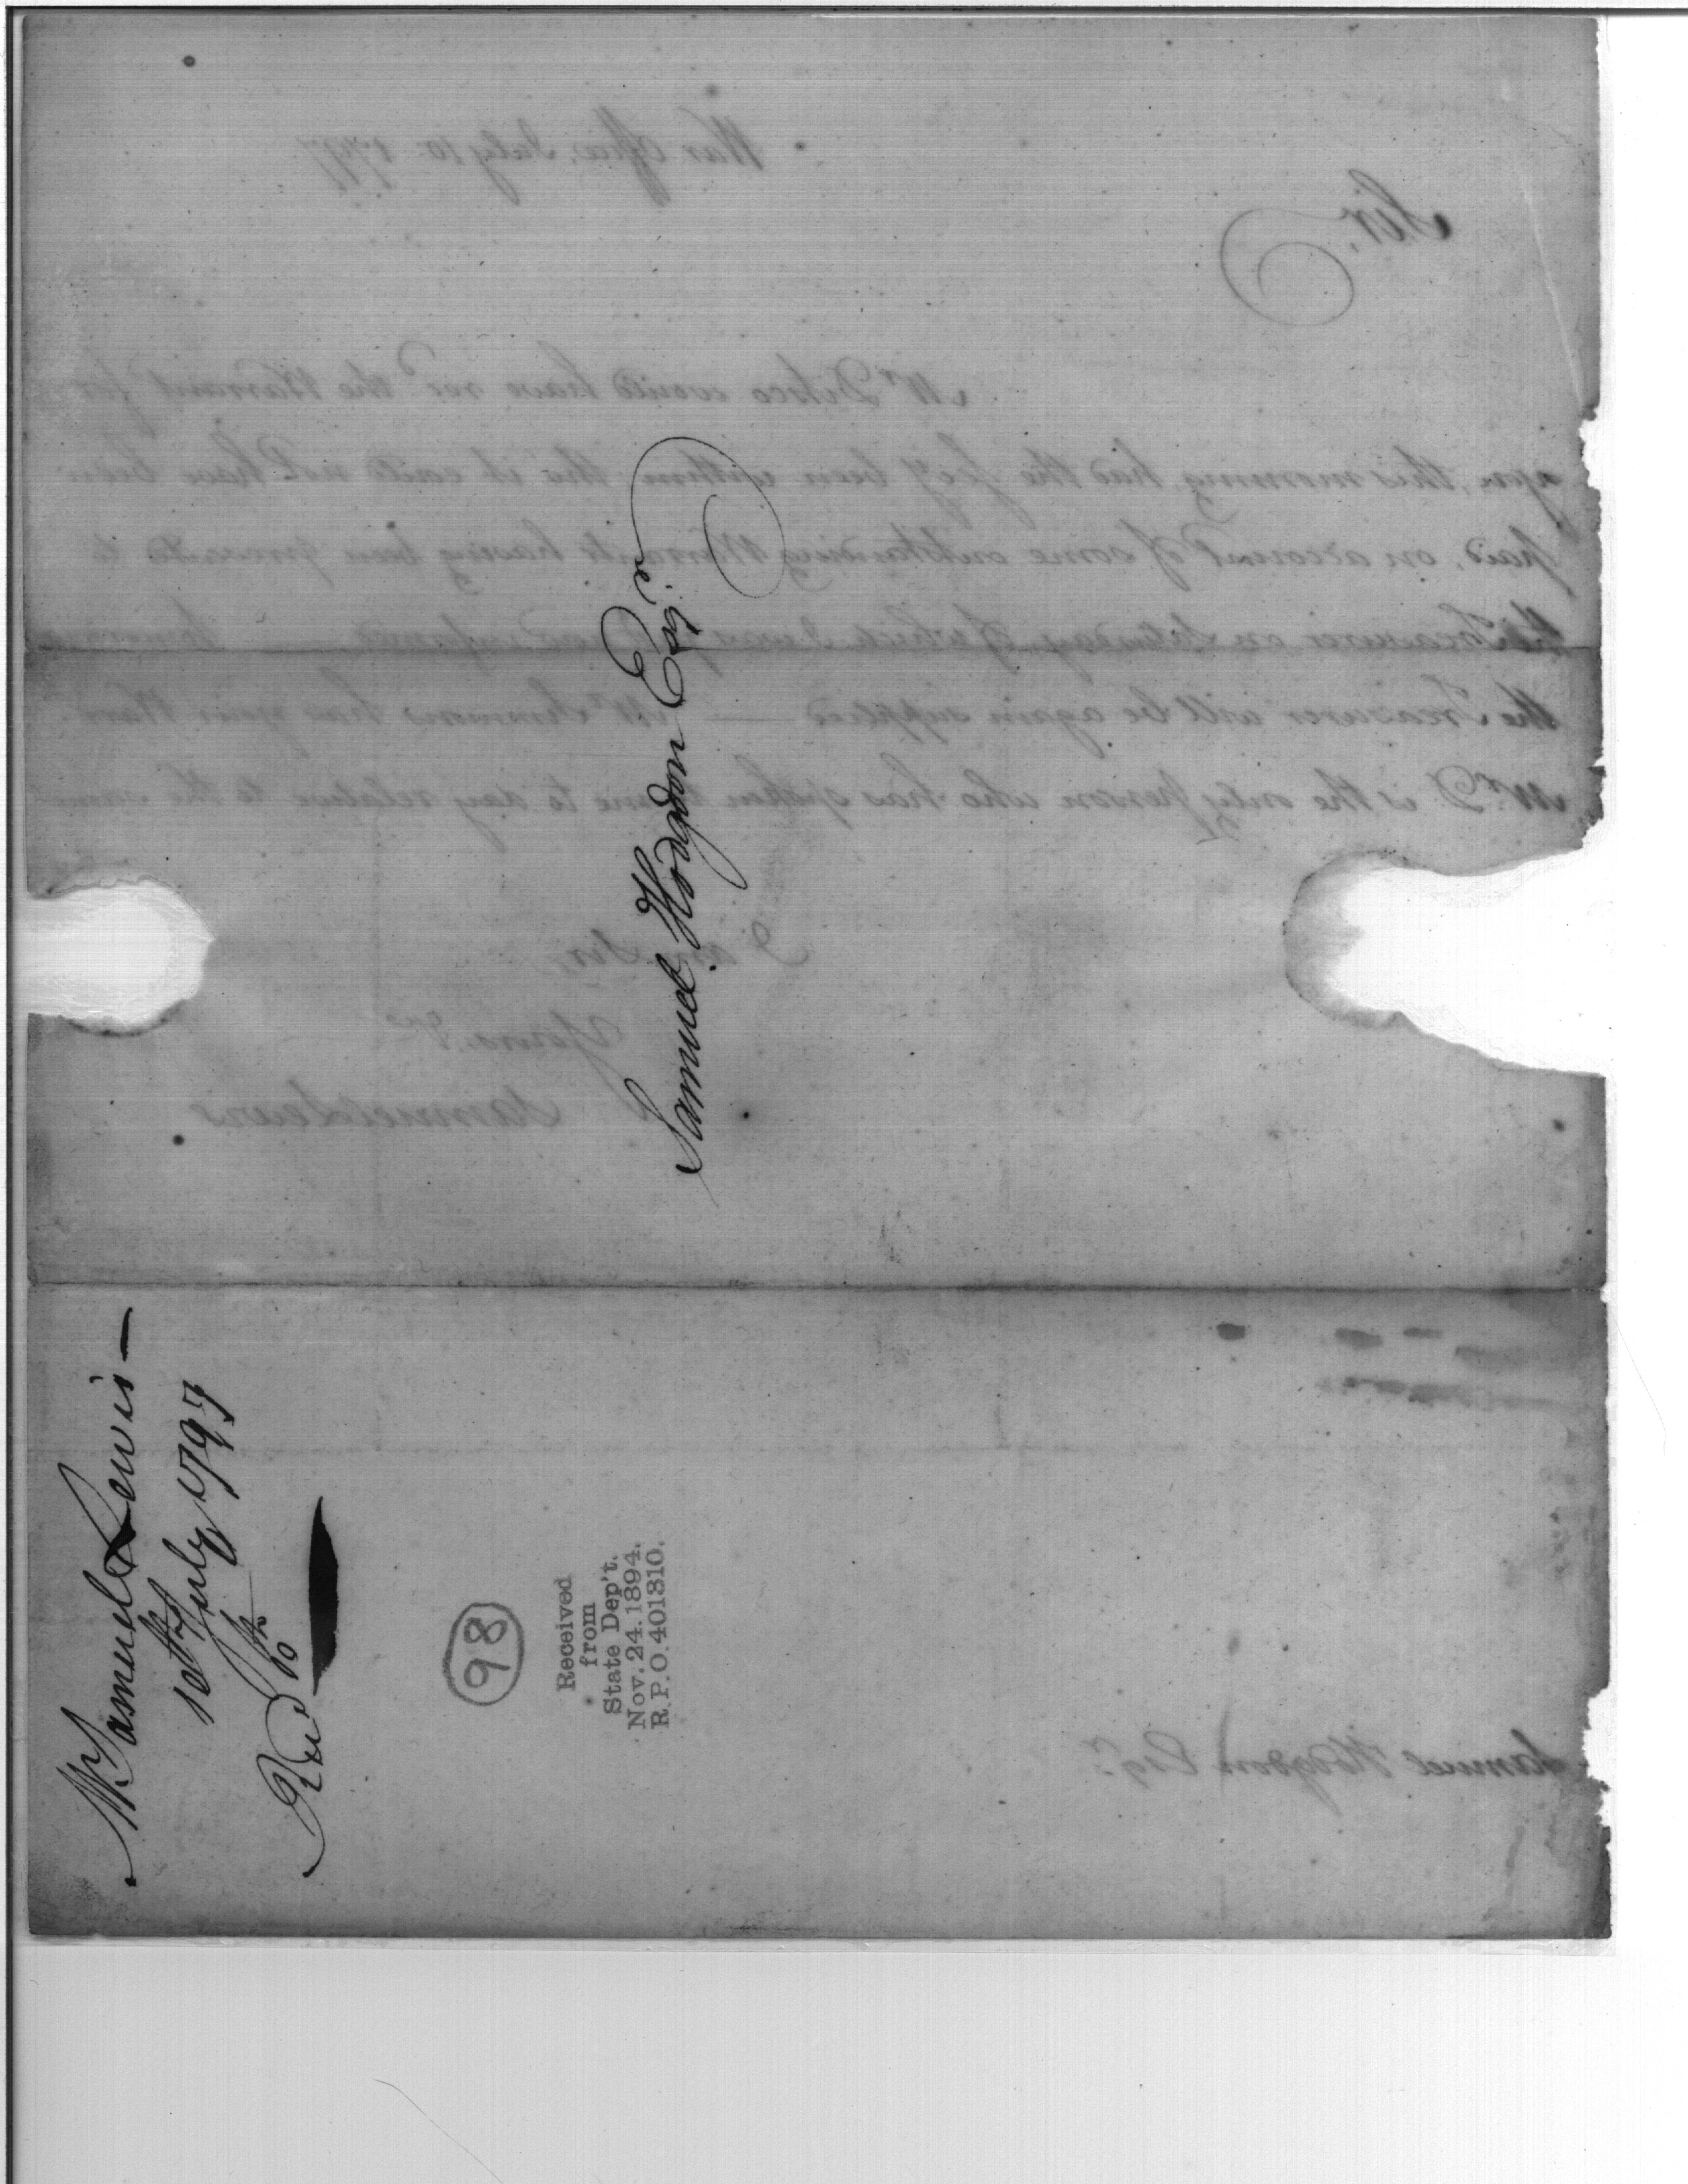 Samuel Hodgdon Esqr.
Mr Samuel Lewis —
10th July 1797
Recd 10th
98
Received
from
State Dep't.
Nov. 24. 1894.
R. P. O. 401310.
War Office, July 10 1797
Sir,
Mr would have recd the Warrant for
you, this morning, had the Secy been within tho' it could not have been
paid, on account of some outstanding Warrants having been presented to
the Treasurer on Saturday, of which I was informed — tomorrow
the Treasurer will be again supplied — Mr Simmons has your Warrt.
Mr D is the only person who has spoken to me to day relative to the same
I am Sir,
Yours &c
Samuel Lewis
Samuel Hodgdon Esqr.